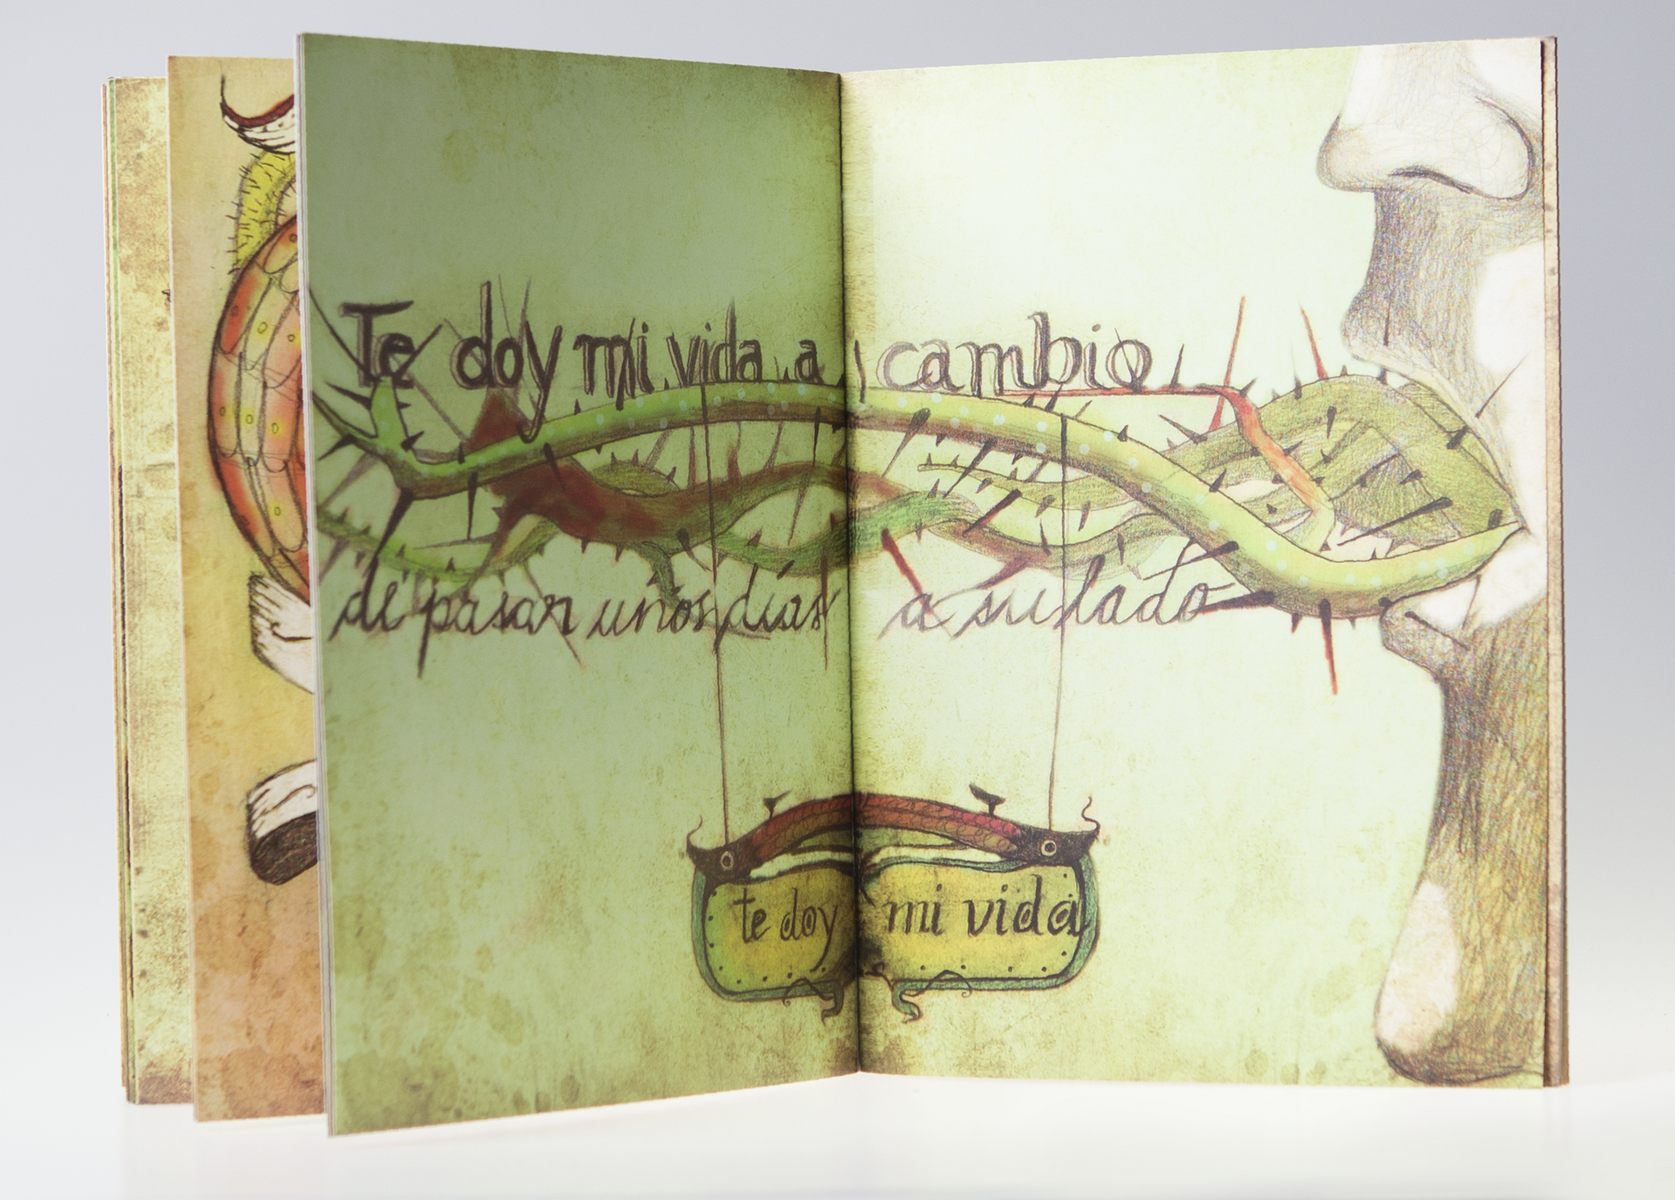 Te doy mi vida a cambio
de pasar unos días a su lado
te doy mi vida